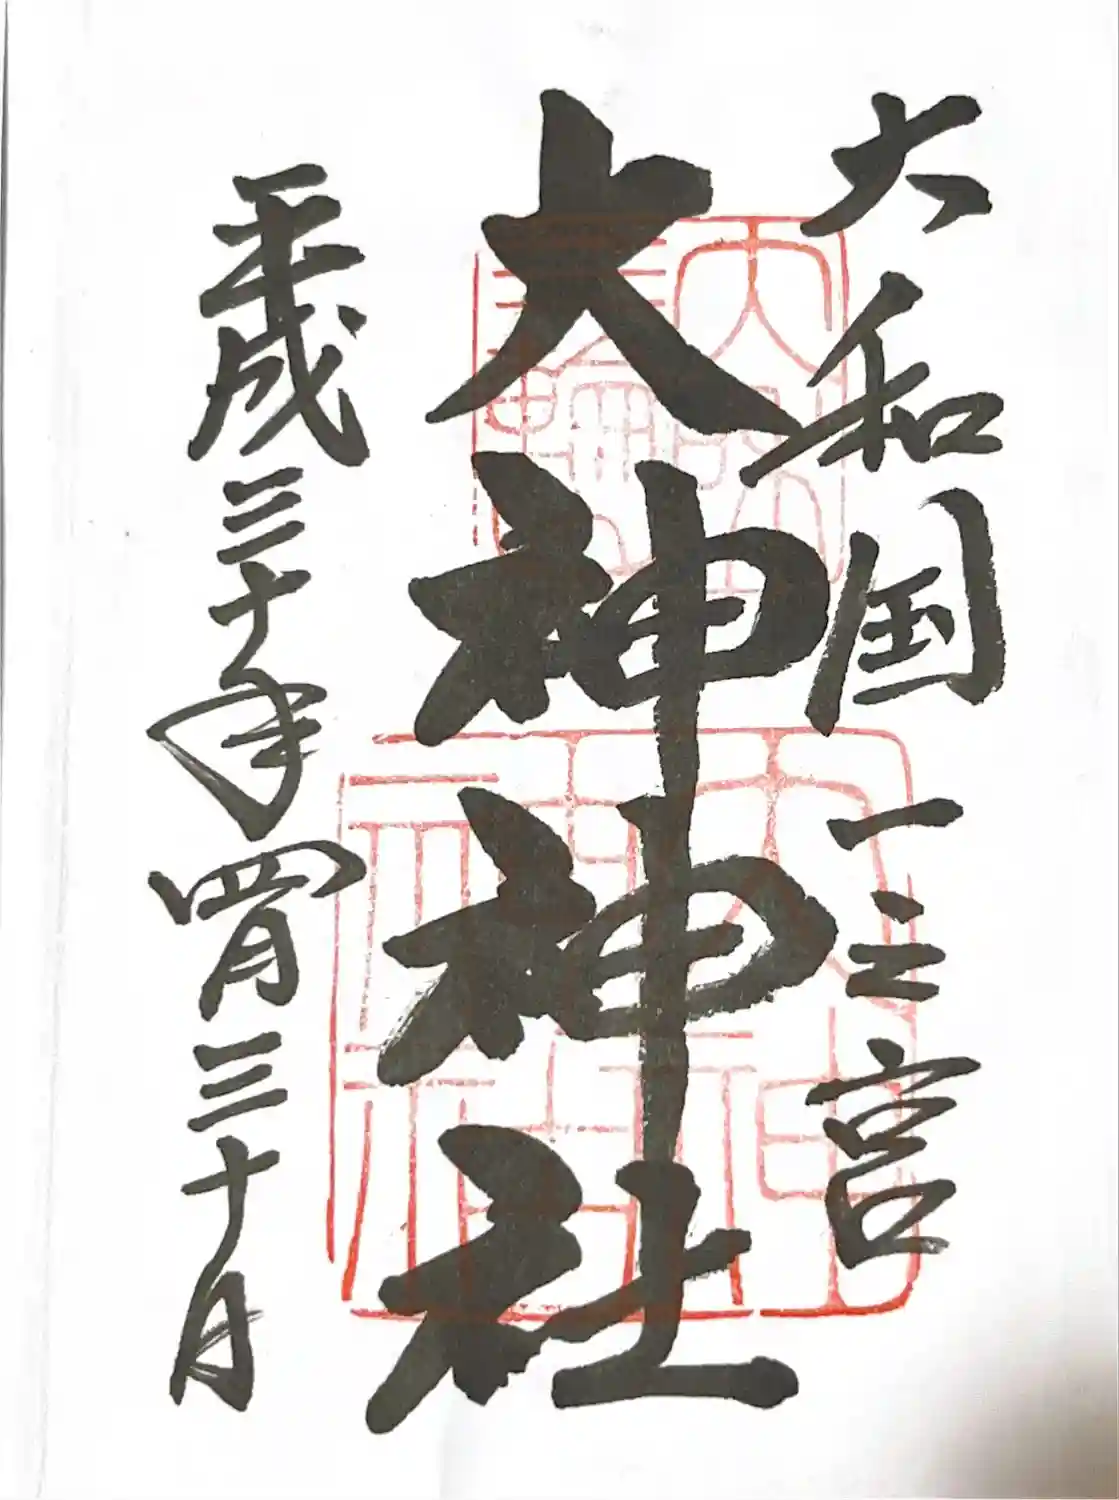 大和国一之宮
大神神社
平成三十年四月三十日